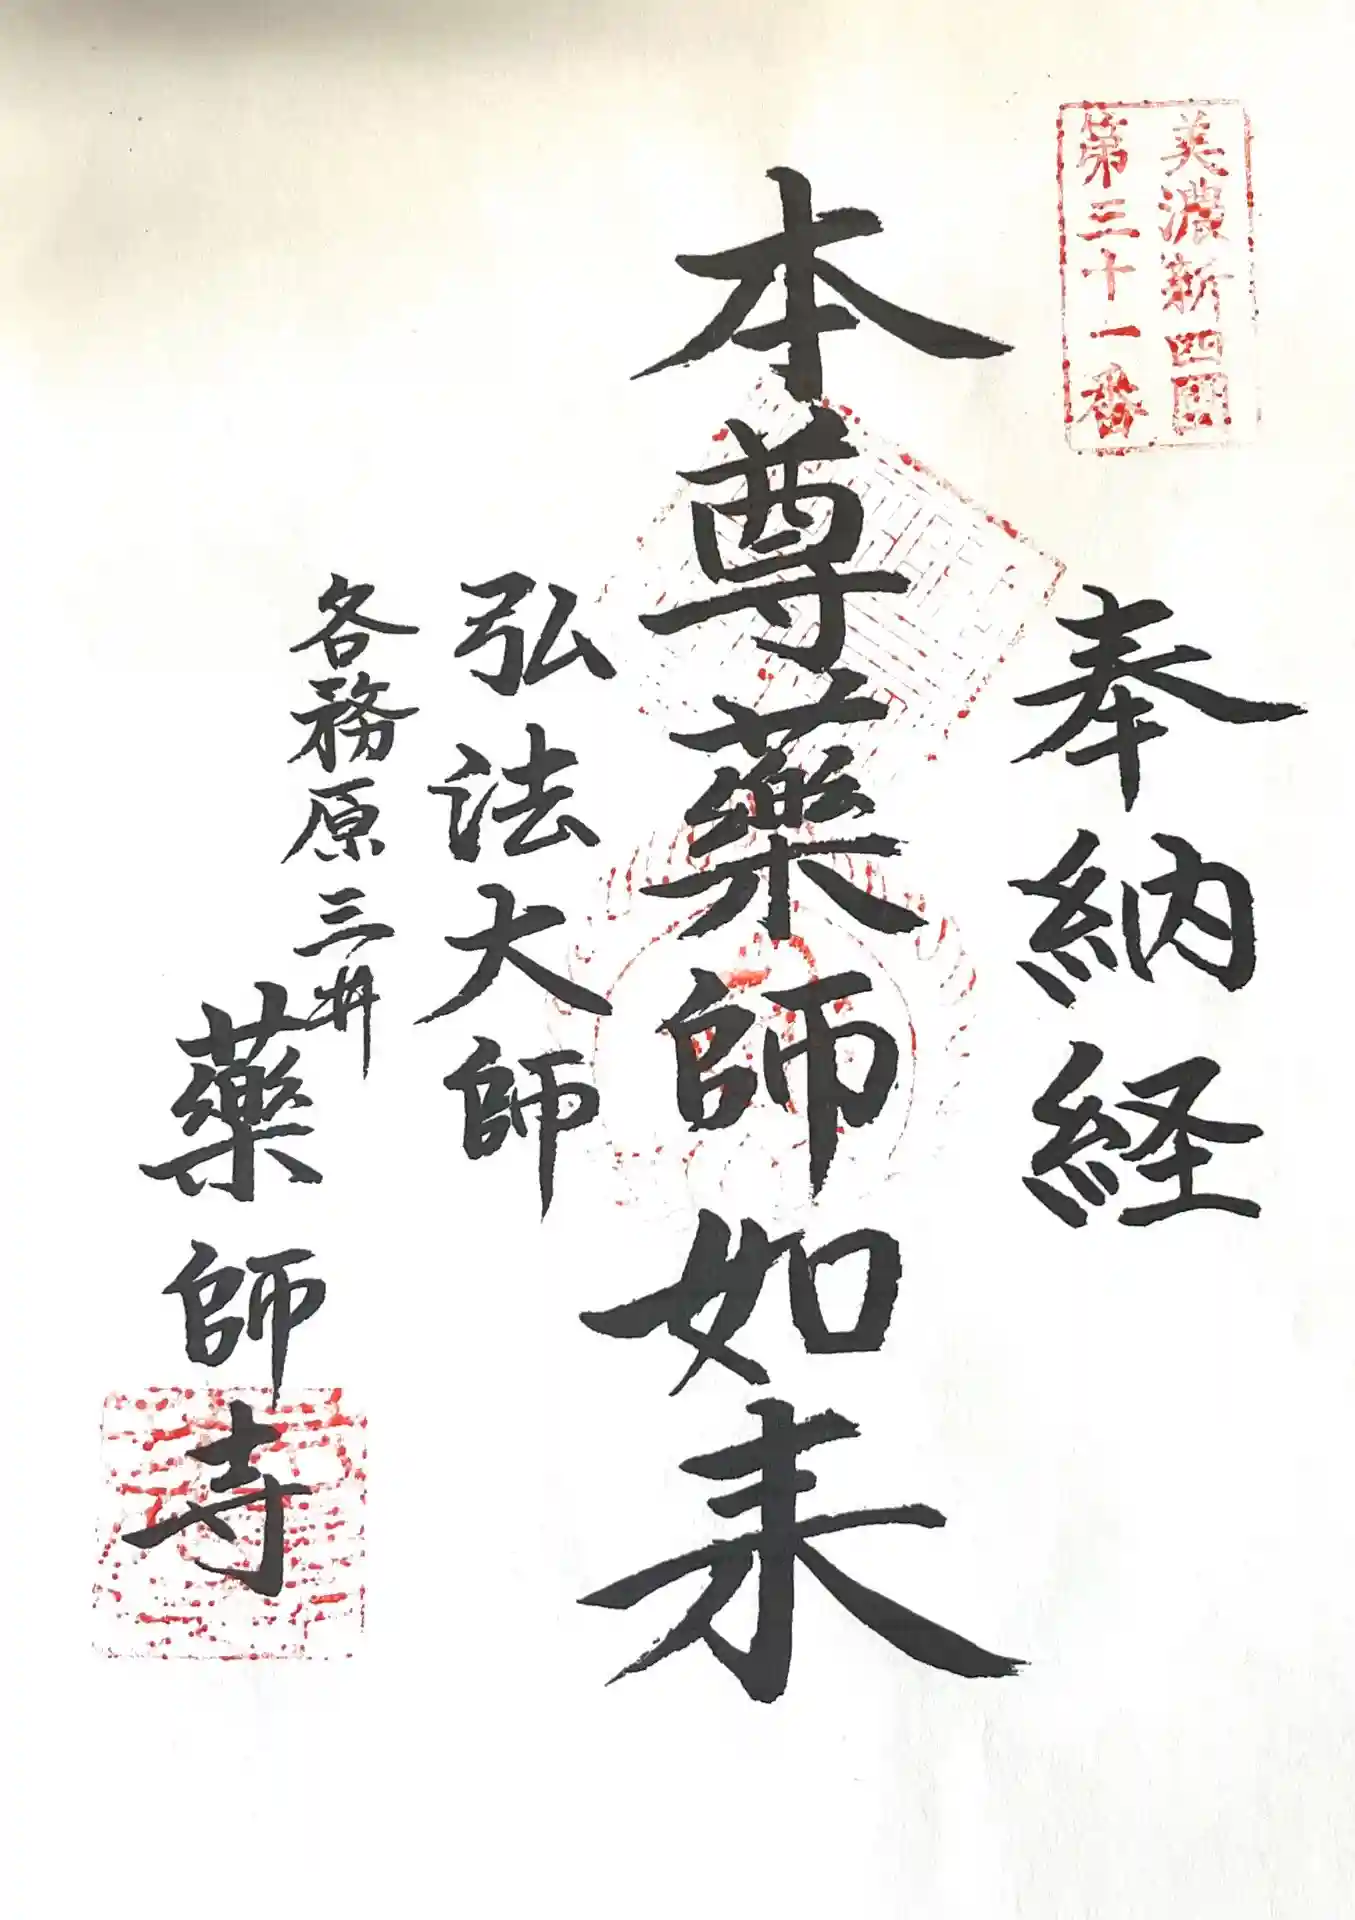 美濃新四國
第三十一番
奉納経
本尊藥師如来
弘法大師
各務原三井
藥師寺